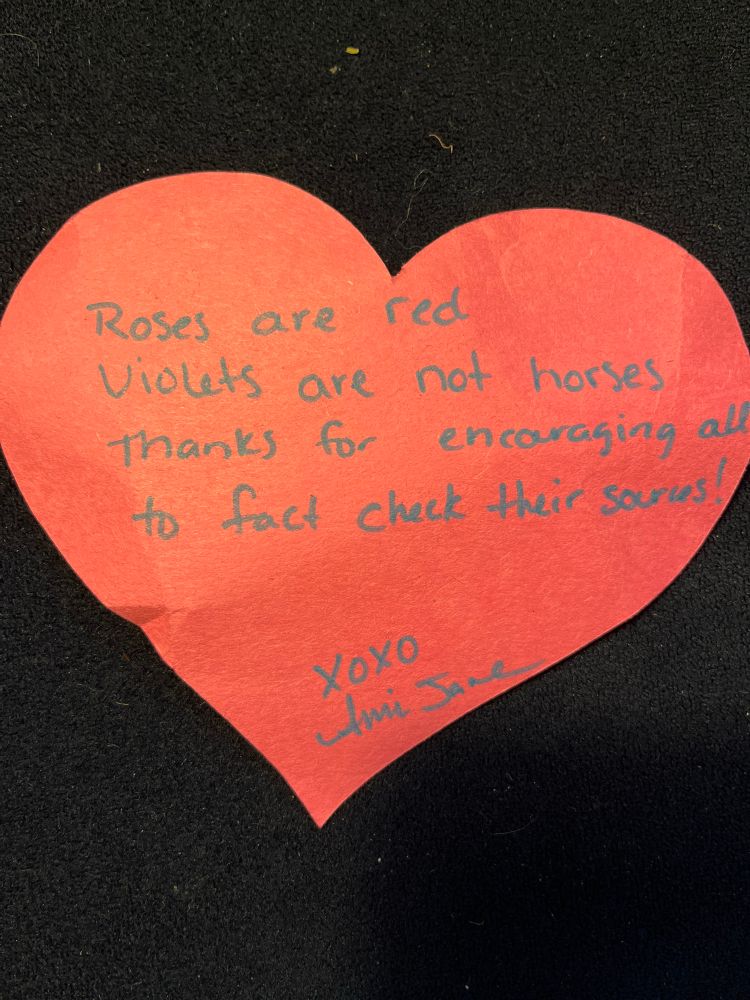 Roses are red
Violets are not horses
Thanks for encouraging all
to fact check their sources!
XOXO
Ami Jane